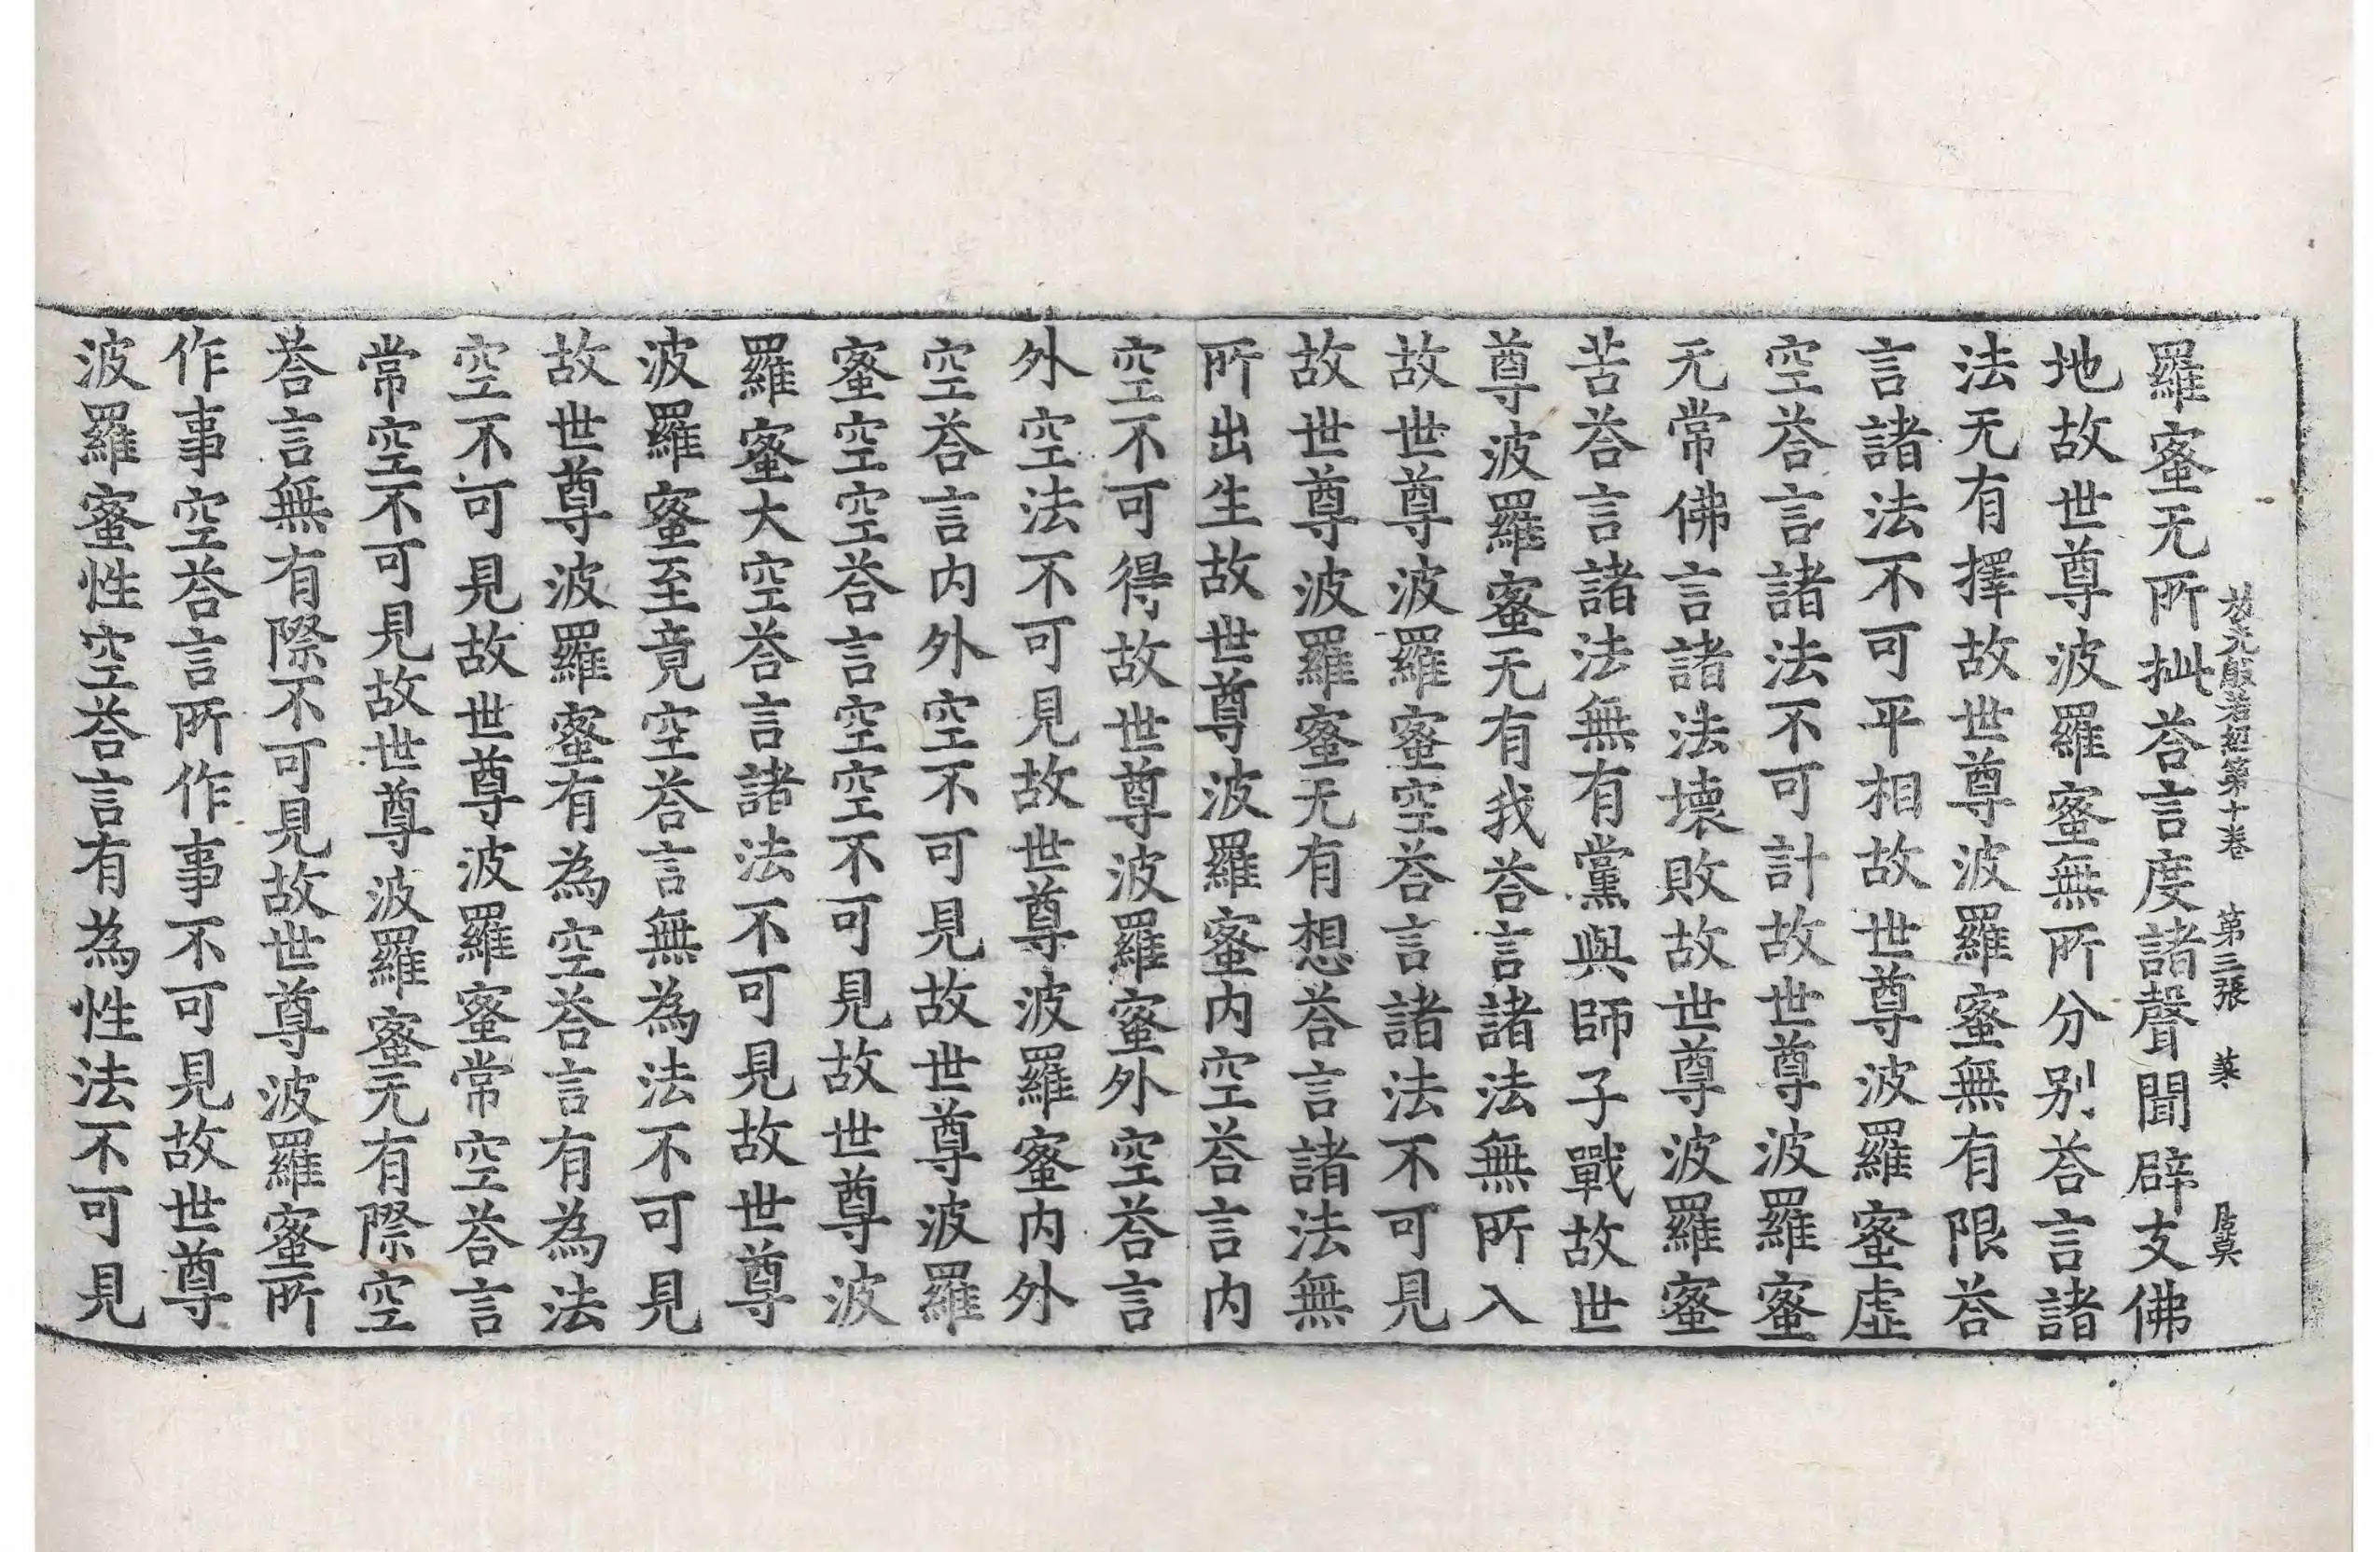 放光般若經第十卷 第三張 菜
羅蜜无所㧗荅言度諸聲聞辟支佛
地故世尊波羅蜜無所分別荅言諸
法无有擇故世尊波羅蜜無有限荅
言諸法不可平相故世尊波羅蜜虛
空荅言諸法不可計故世尊波羅蜜
无常佛言諸法壞敗故世尊波羅蜜
苦荅言諸法無有黨與師子戰故世
尊波羅蜜无有我荅言諸法無所入
故世尊波羅蜜空荅言諸法不可見
故世尊波羅蜜无有想荅言諸法無
所出生故世尊波羅蜜內空荅言內
空不可得故世尊波羅蜜外空荅言
外空法不可見故世尊波羅蜜內外
空荅言內外空不可見故世尊波羅
蜜空空荅言空空不可見故世尊波
羅蜜大空荅言諸法不可見故世尊
波羅蜜至竟空荅言無為法不可見
故世尊波羅蜜有為空荅言有為法
空不可見故世尊波羅蜜常空荅言
常空不可見故世尊波羅蜜无有際空
荅言無有際不可見故世尊波羅蜜所
作事空荅言所作事不可見故世尊
波羅蜜性空荅言有為性法不可見